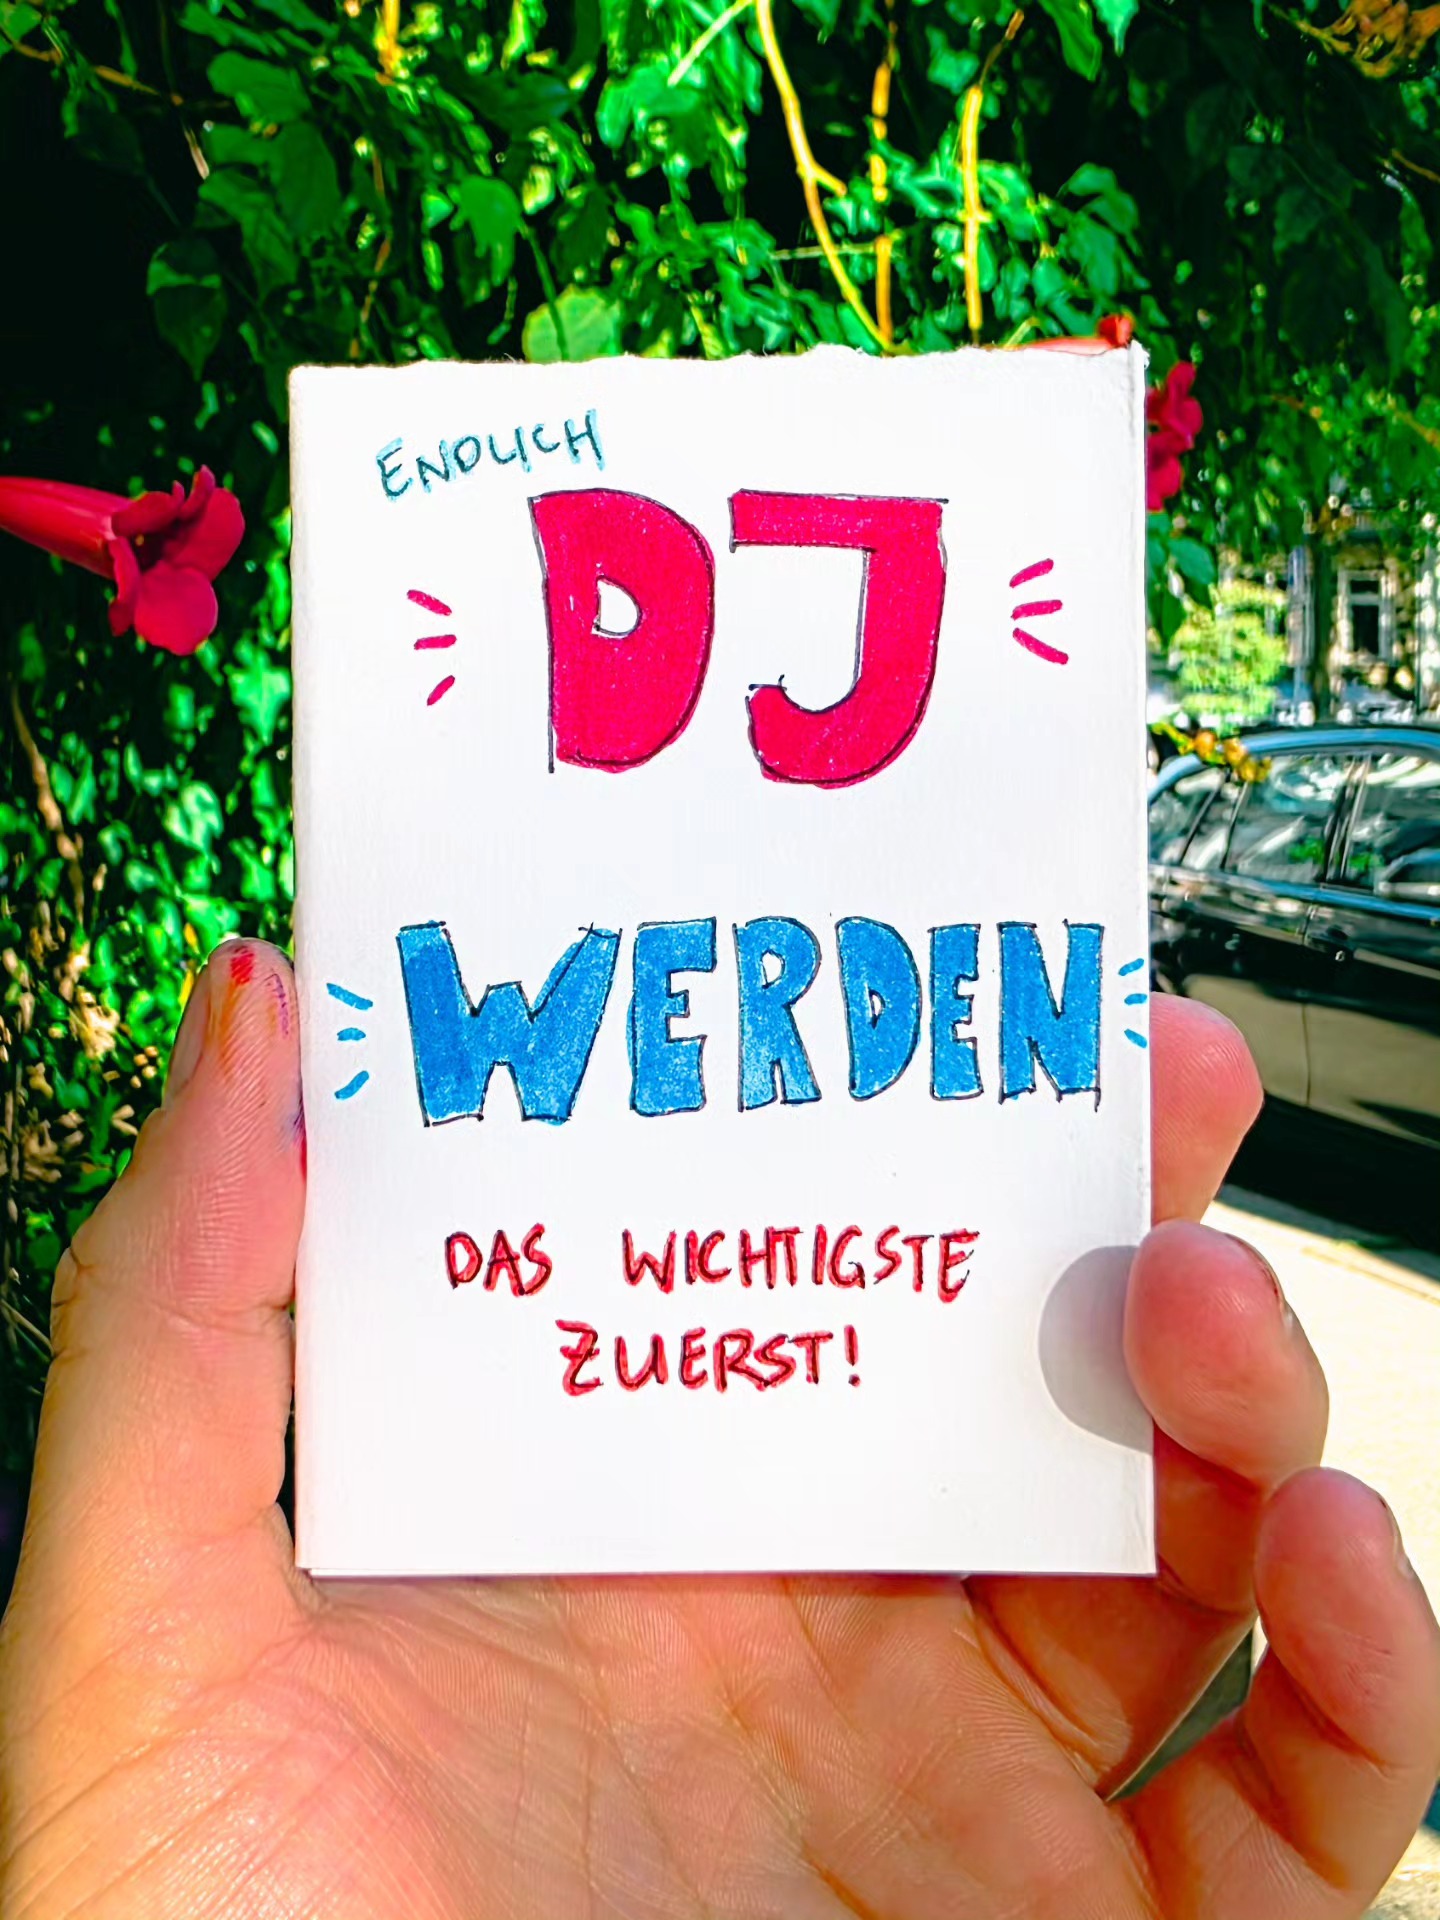 ENDLICH
DJ
WERDEN
DAS WICHTIGSTE
ZUERST!